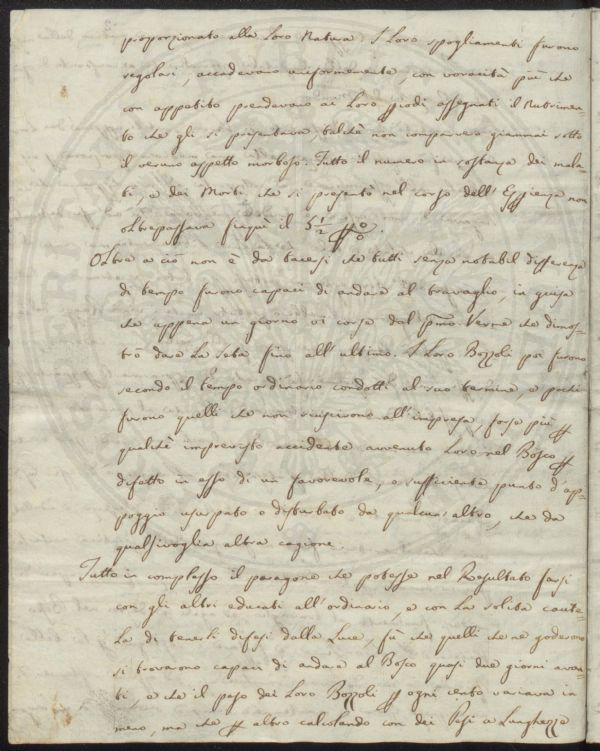 proporzionato alla Loro Natura. I Loro spogliamenti furono
regolari, accadevano uniformemente, con voracità più che
con appetito prendevano ai Loro piodi assegnati il Nutrimen-
to che gli si presentava, talchè non comparvero giammai sotto
il verano aspetto morboso. Tutto il numero in sostanza dei mala-
ti, e dei Morti che si presentò nel corso dell'Espienza non
oltrepassava il 5 1/2 p o/o.
Oltre a ciò non è da tacersi che tutti senza notabil differenza
di tempo furono capaci di andare al travaglio, in guisa
che appena un giorno vi corse dal pmo Verme che dimos-
trò dare La Seta fino all'ultimo. I Loro Bozzoli poi furono
secondo il tempo ordinario condotti al suo termine, e pochi
furono quelli che non riuscirono all'impresa, forse più p
qualche imprevisto accidente avvenuto Loro nel Bosco p
difetto in esso di un favorevole, e sufficiente punto d'ap-
poggio usurpato o disturbato da qualcun'altro, che da
qualsivoglia altra cagione.
Tutto in complesso il paragone che potesse nel Resultato farsi
con gli altri educati all'ordinario, e con La solita caute-
la di tenerli difesi dalla Luce, fù che quelli che ne goderono
si trovarono capaci di andare al Bosco quasi due giorni avan-
ti, e che il peso dei Loro Bozzoli p ogni cento variava in
meno, ma che p altro calcolando con dei Pesi a Lunghezza